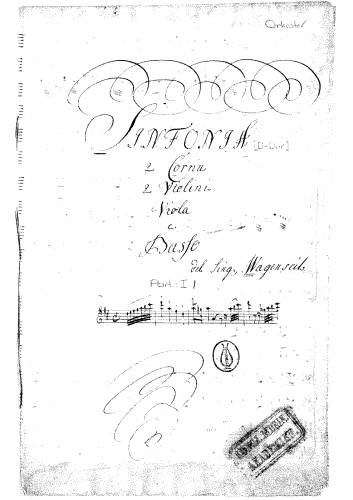 Orkester
SINFONIA [D-Dur]
2 Cornu
2 Violini
Viola
e
Basso
del Sing. Wagenseil